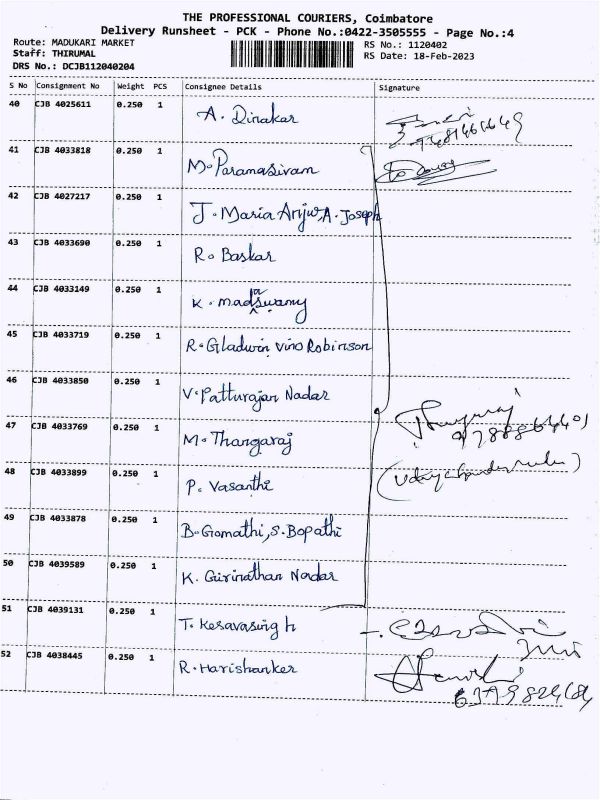 THE PROFESSIONAL COURIERS, Coimbatore
Delivery Runsheet - PCK - Phone No.:0422-3505555 - Page No.:4
Route: MADUKARI MARKET RS No.: 1120402
Staff: THIRUMAL RS Date: 18-Feb-2023
DRS No.: DCJB112040204
S No Consignment No Weight PCS Consignee Details Signature
40 CJB 4025611 0.250 1 A. Dinakar
41 CJB 4033818 0.250 1 M. Paramasivam
42 CJB 4027217 0.250 1 J. Maria Anju, A. Joseph
43 CJB 4033690 0.250 1 R. Baskar
44 CJB 4033149 0.250 1 K. Madaswamy
45 CJB 4033719 0.250 1 R. Gladwin Vino Robinson
46 CJB 4033850 0.250 1 V. Patturajan Nadar
47 CJB 4033769 0.250 1 M. Thangaraj
48 CJB 4033899 0.250 1 P. Vasanthi
49 CJB 4033878 0.250 1 B. Gomathi, S. Bopathi
50 CJB 4039589 0.250 1 K. Girinathan Nadar
51 CJB 4039131 0.250 1 T. Kesavasingh
52 CJB 4038445 0.250 1 R. Harishanker